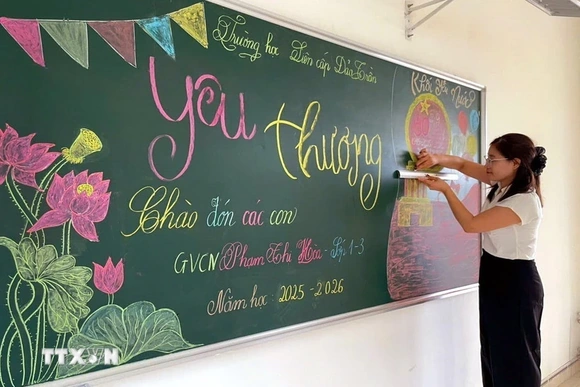 Trường học Liên cấp Dủa Trần
Khối Yêu Nước
yêu
thương
Chào đón các con
GVCN Phạm Thị Hòa - Lớp 1-3
Năm học: 2025-2026
TTXVN